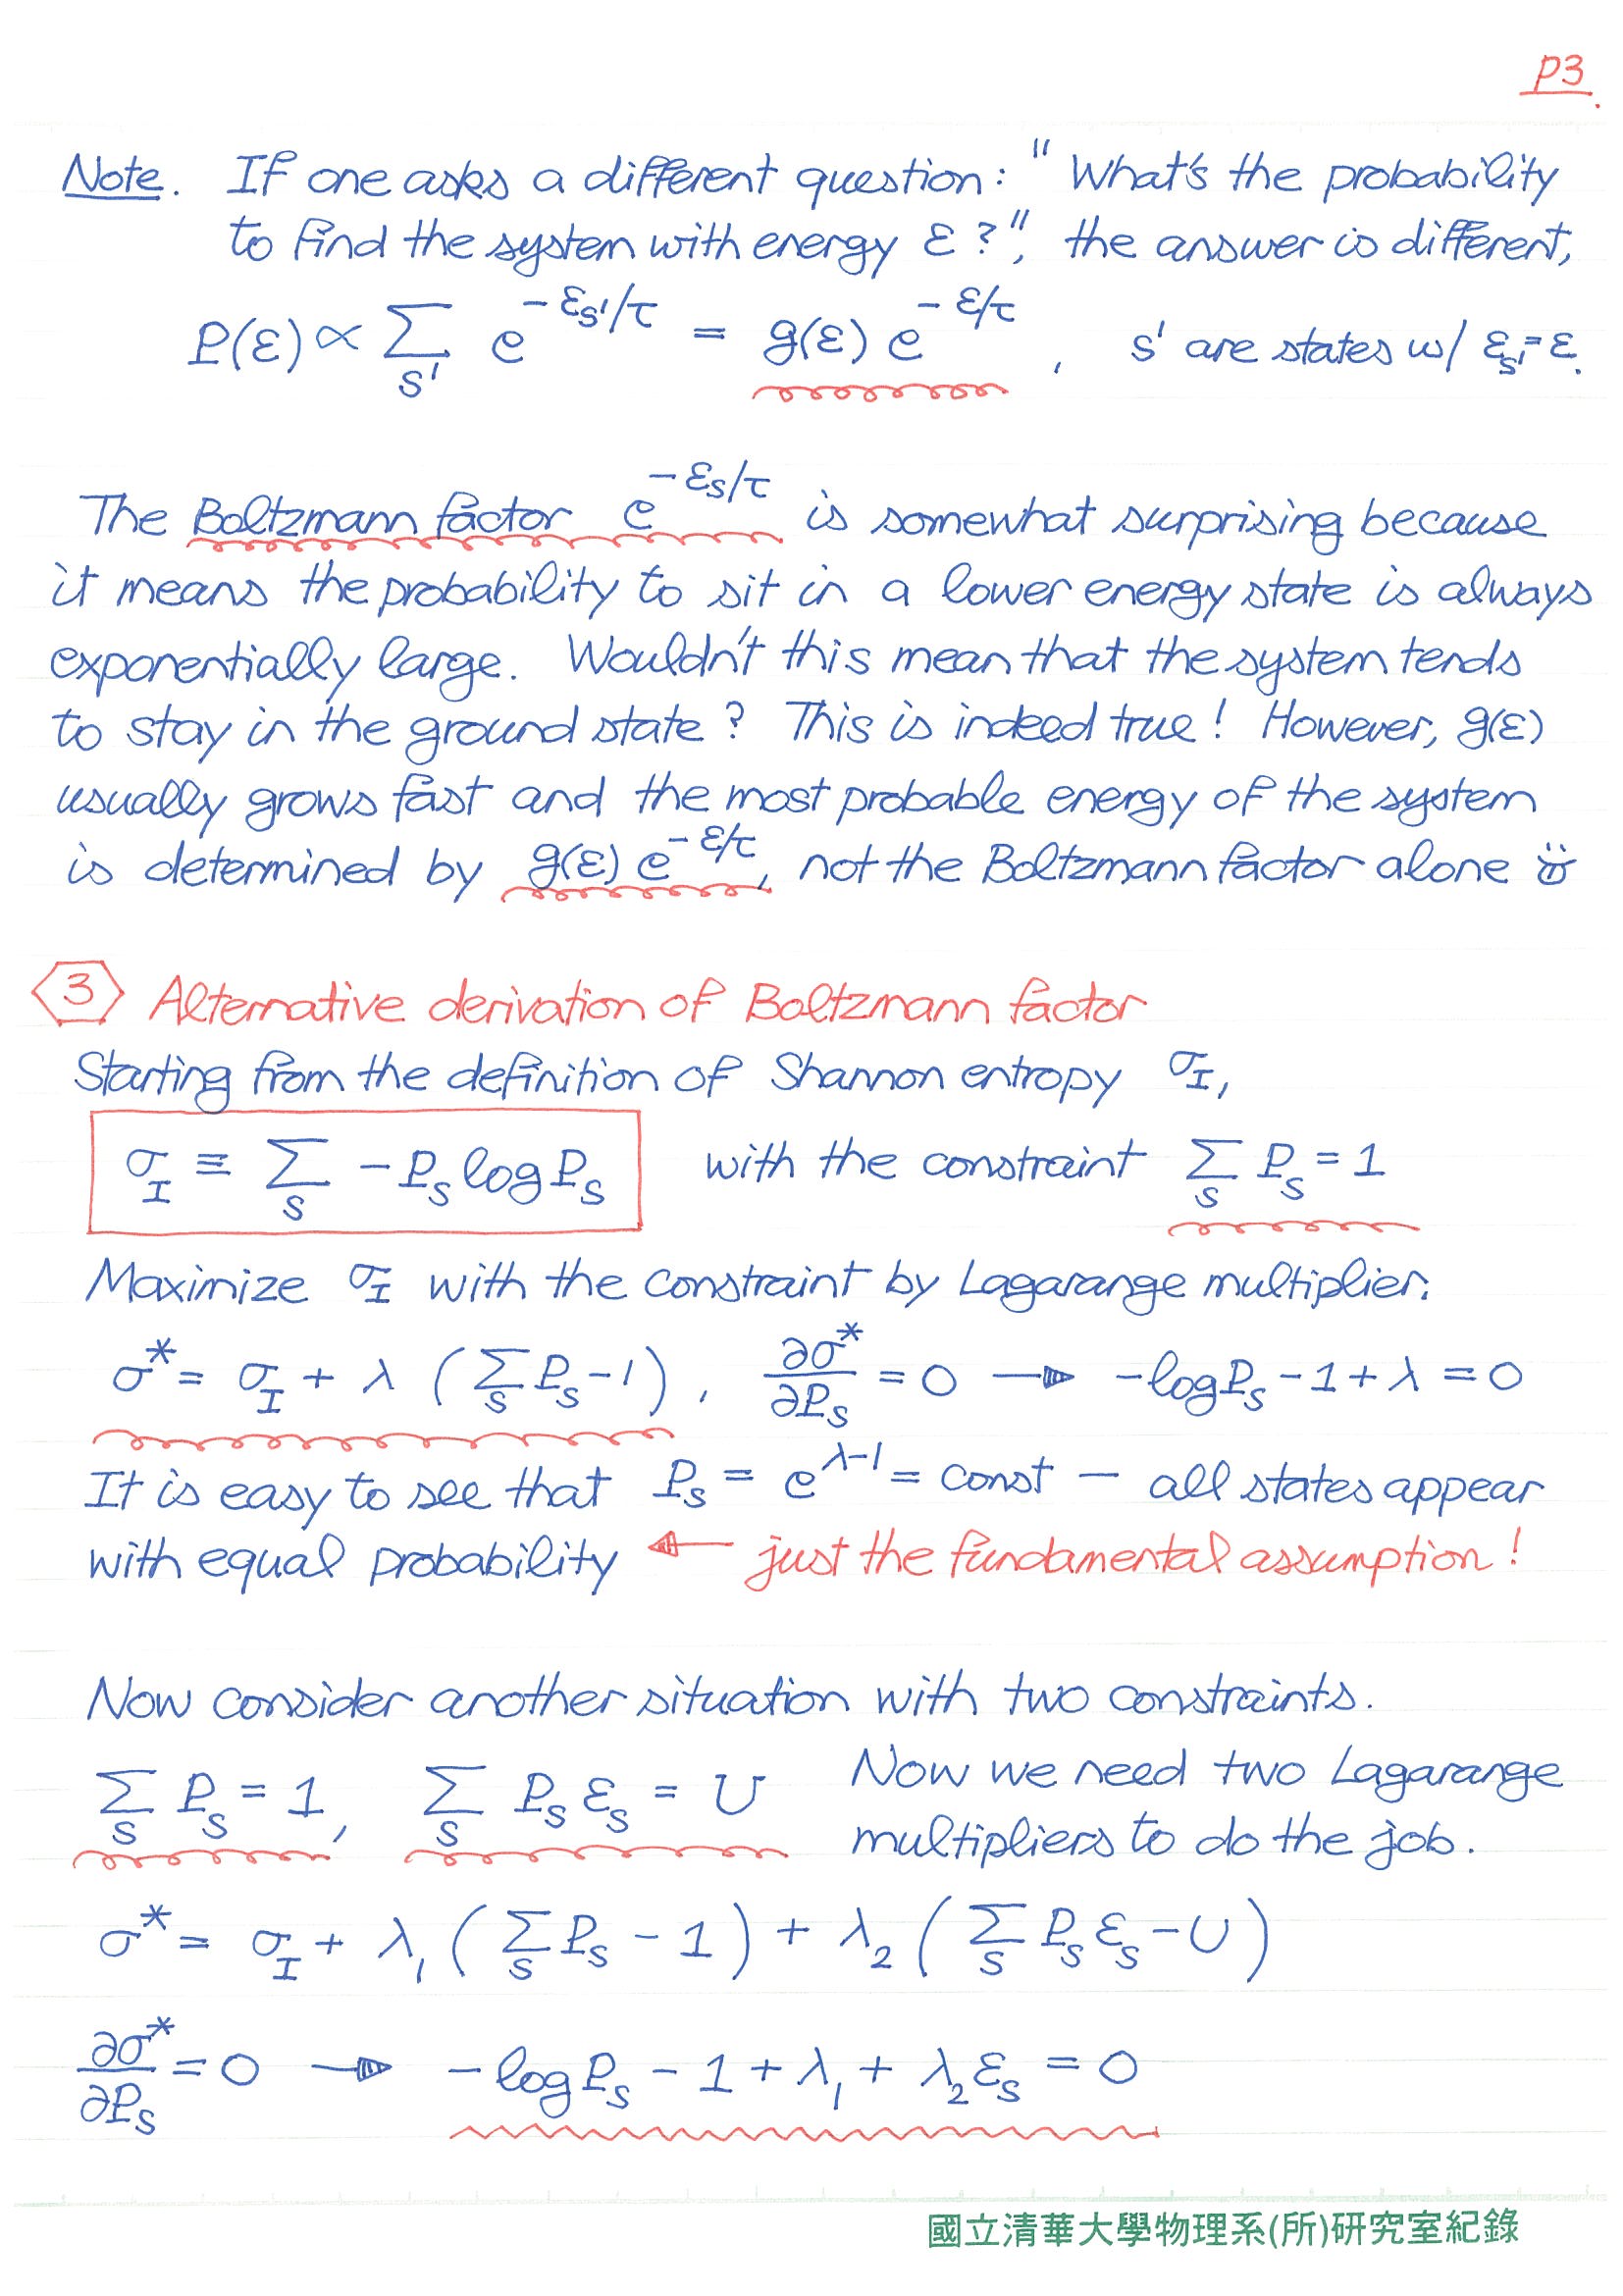 P3.
Note. If one asks a different question: "What's the probability
to find the system with energy ε?", the answer is different,
P(ε) ∝ Σ_s' e^{-ε_s'/τ} = g(ε) e^{-ε/τ}, s' are states w/ ε_s' = ε.
The Boltzmann factor e^{-ε_s/τ} is somewhat surprising because
it means the probability to sit in a lower energy state is always
exponentially large. Wouldn't this mean that the system tends
to stay in the ground state? This is indeed true! However, g(ε)
usually grows fast and the most probable energy of the system
is determined by g(ε) e^{-ε/τ}, not the Boltzmann factor alone ☺
3 Alternative derivation of Boltzmann factor
Starting from the definition of Shannon entropy σ_I,
σ_I ≡ Σ_s -P_s log P_s with the constraint Σ_s P_s = 1
Maximize σ_I with the constraint by Lagarange multiplier.
σ* = σ_I + λ (Σ_s P_s - 1), ∂σ*/∂P_s = 0 → -log P_s - 1 + λ = 0
It is easy to see that P_s = e^{λ-1} = const — all states appear
with equal probability ← just the fundamental assumption!
Now consider another situation with two constraints.
Σ_s P_s = 1, Σ_s P_s ε_s = U Now we need two Lagarange
multipliers to do the job.
σ* = σ_I + λ_1 (Σ_s P_s - 1) + λ_2 (Σ_s P_s ε_s - U)
∂σ*/∂P_s = 0 → -log P_s - 1 + λ_1 + λ_2 ε_s = 0
國立清華大學物理系(所)研究室紀錄